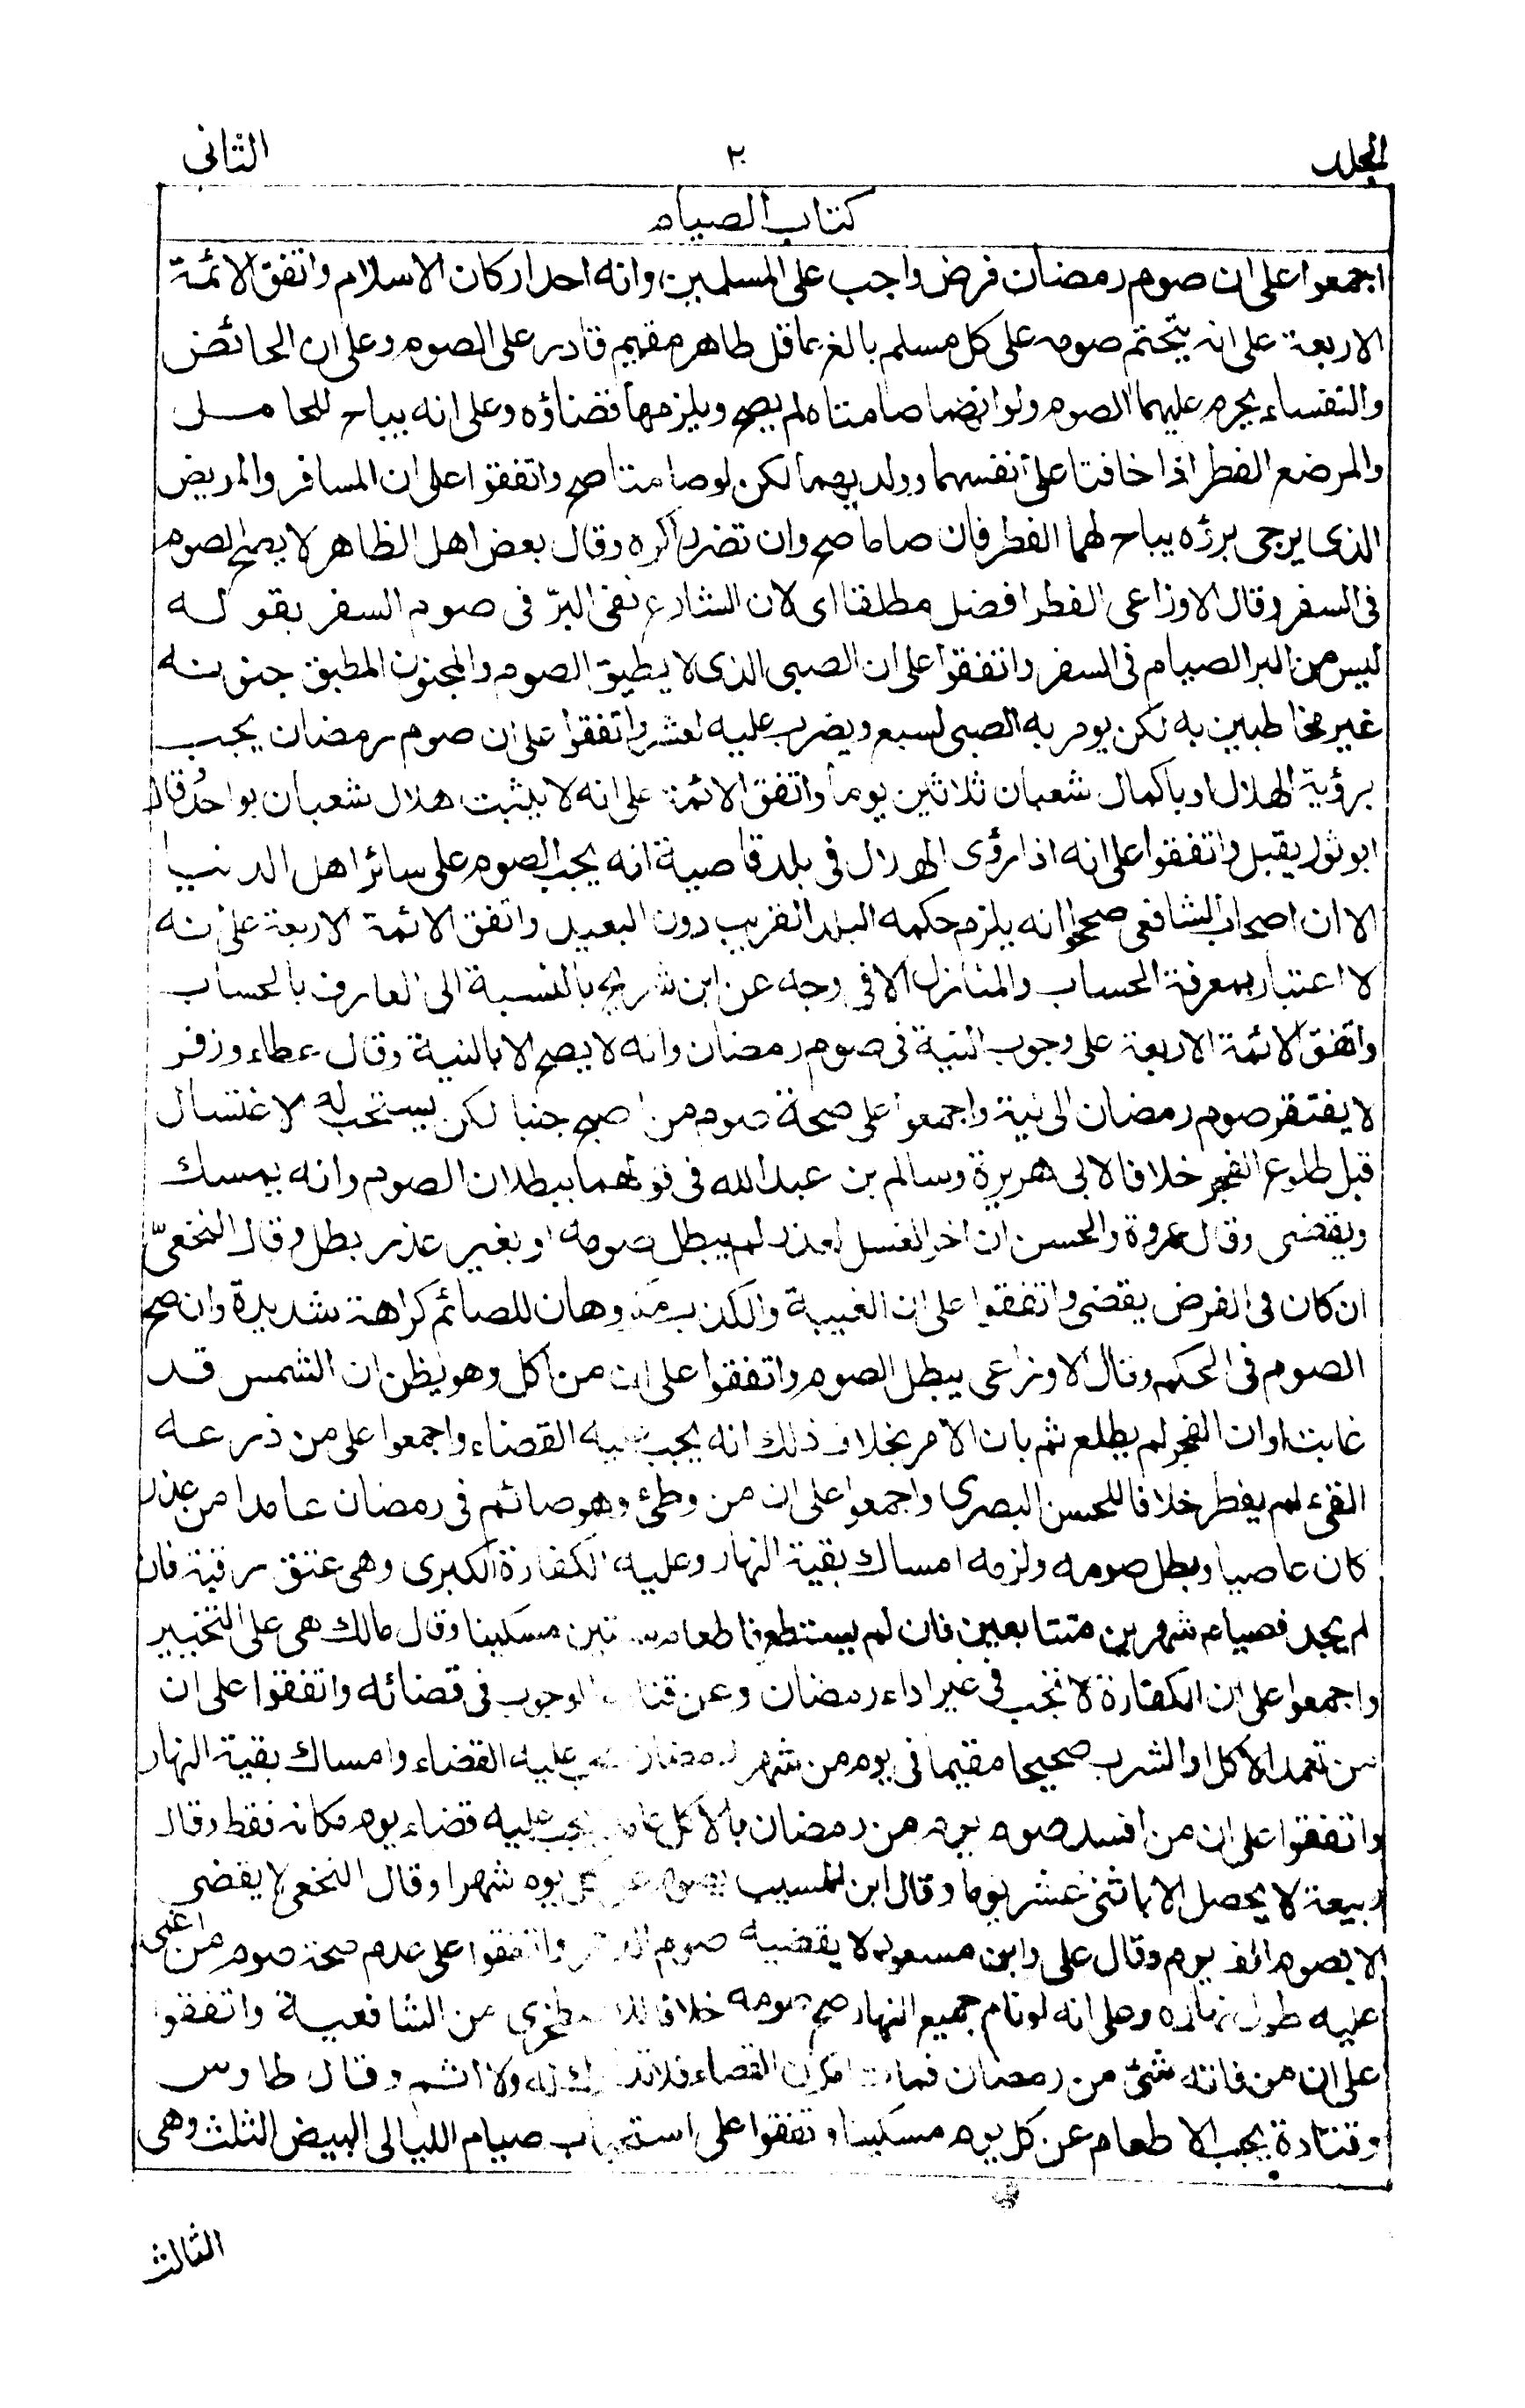 المجلد ٢ الثانى
كتاب الصيام
اجمعوا على ان صوم رمضان فرض واجب على المسلمين وانه احد اركان الاسلام واتفق الائمة
الاربعة على انه يتحتم صومه على كل مسلم بالغ عاقل طاهر مقيم قادر على الصوم وعلى ان الحائض
والنفساء يحرم عليهما الصوم ولو انهما صامتاه لم يصح ويلزمها قضاؤه وعلى انه يباح للحامل
والمرضع الفطر اذا خافتا على انفسهما وولديهما لكن لو صامتا صح واتفقوا على ان المسافر والمريض
الذى يرجى برؤه يباح لهما الفطر فان صاما صح وان تضررا كره وقال بعض اهل الظاهر لا يصح الصوم
فى السفر وقال الاوزاعى الفطر افضل مطلقا اى لان الشارع نفى البرّ فى صوم السفر بقوله
ليس من البر الصيام فى السفر واتفقوا على ان الصبى الذى لا يطيق الصوم والمجنون المطبق جنونه
غير مخاطبين به لكن يومر به الصبى لسبع ويضرب عليه لعشر واتفقوا على ان صوم رمضان يجب
برؤية الهلال او باكمال شعبان ثلاثين يوما واتفق الائمة على انه لا يثبت هلال شعبان بواحد وقال
ابو ثور يقبل واتفقوا على انه اذا رؤى الهلال فى بلد قاصية انه يجب الصوم على سائر اهل الدنيا
الا ان اصحاب الشافعى صححوا انه يلزم حكمه البلد القريب دون البعيد واتفق الائمة الاربعة على انه
لا اعتبار بمعرفة الحساب والمنازل الا فى وجه عن ابن شريح بالنسبة الى العارف بالحساب
واتفق الائمة الاربعة على وجوب النية فى صوم رمضان وانه لا يصح الا بالنية وقال عطاء وزفر
لا يفتقر صوم رمضان الى نية واجمعوا على صحة صوم من اصبح جنبا لكن يستحب له الاغتسال
قبل طلوع الفجر خلافا لابى هريرة وسالم بن عبد الله فى قولهما ببطلان الصوم وانه يمسك
ويقضى وقال عروة والحسن ان اخر الغسل لعذر لم يبطل صومه او بغير عذر بطل وقال النخعىّ
ان كان فى الفرض يقضى واتفقوا على ان الغيبة والكذب مكروهان للصائم كراهة شديدة وان صح
الصوم فى الحكم وقال الاوزاعى يبطل الصوم واتفقوا على ان من اكل وهو يظن ان الشمس قد
غابت او ان الفجر لم يطلع ثم بان الامر بخلاف ذلك انه يجب عليه القضاء واجمعوا على من ذرعه
القئ لم يفطر خلافا للحسن البصرى واجمعوا على ان من وطئ وهو صائم فى رمضان عامدا من عذر
كان عاصيا وبطل صومه ولزمه امساك بقية النهار وعليه الكفارة الكبرى وهى عتق رقبة فان
لم يجد فصيام شهرين متتابعين فان لم يستطع فاطعام ستين مسكينا وقال مالك هى على التخيير
واجمعوا على ان الكفارة لا تجب فى غير اداء رمضان وعن قتادة الوجوب فى قضائه واتفقوا على ان
من تعمد الاكل او الشرب صحيحا مقيما فى يوم من شهر رمضان يجب عليه القضاء وامساك بقية النهار
واتفقوا على ان من افسد صوم يوم من رمضان بالاكل عامدا يجب عليه قضاء يوم مكانه فقط وقال
ربيعة لا يحصل الا باثنى عشر يوما وقال ابن المسيب يصوم عن كل يوم شهرا وقال النخعى لا يقضى
الا بصوم الف يوم وقال على وابن مسعود لا يقضيه صوم الدهر واتفقوا على عدم صحة صوم من اغمى
عليه طول نهاره وعلى انه لو نام جميع النهار صح صومه خلافا للاصطخرى من الشافعية واتفقوا
على ان من فاته شئ من رمضان فمات قبل امكان القضاء فلا تدارك له ولا اثم وقال طاوس
وقتادة يجب الاطعام عن كل يوم مسكينا واتفقوا على استحباب صيام الليالى البيض الثلث وهى
الثالث